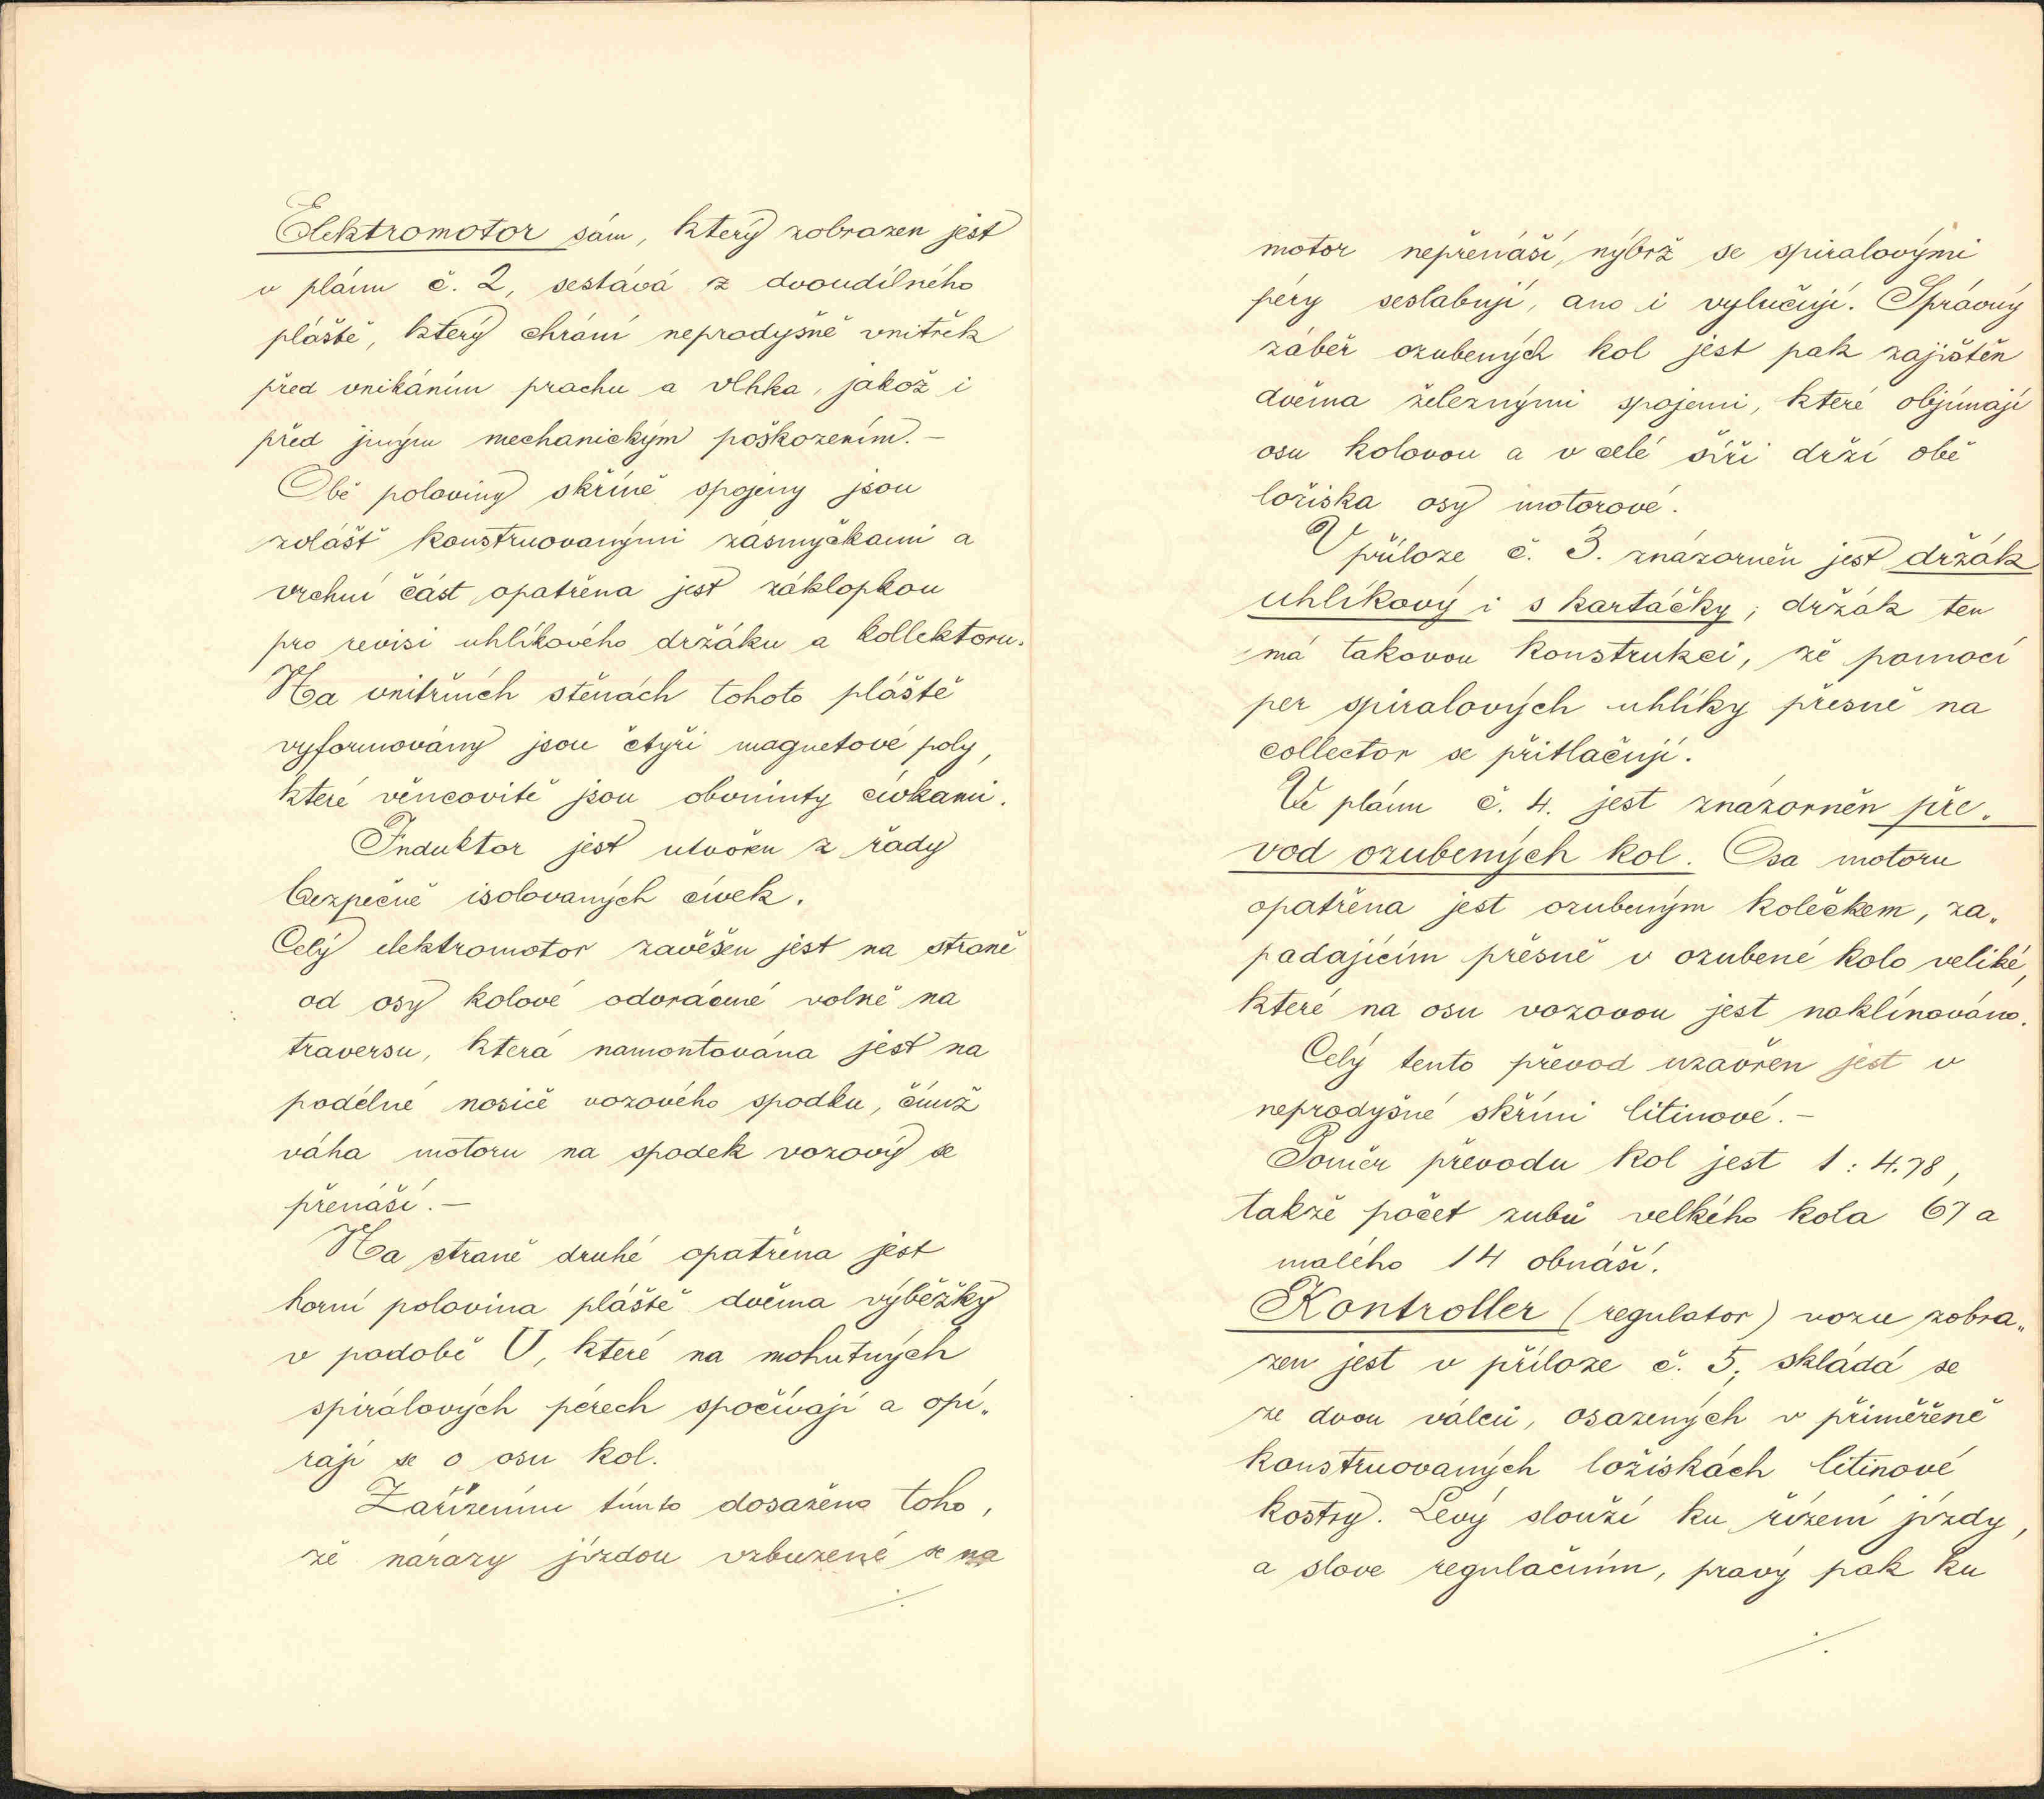 Elektromotor sám, který zobrazen jest
v plánu č. 2, sestává z dvoudílného
pláště, který chrání neprodyšně vnitřek
před vnikáním prachu a vlhka, jakož i
před jiným mechanickým poškozením.—
Obě poloviny skříně spojeny jsou
zvlášť konstruovanými zásmyčkami a
vrchní část opatřena jest záklopkou
pro revisi uhlíkového držáku a kollektoru.
Na vnitřních stěnách tohoto pláště
vyformovány jsou čtyři magnetové poly,
které věncovitě jsou obvinuty cívkami.
Induktor jest utvořen z řady
bezpečně isolovaných cívek.
Celý elektromotor zavěšen jest na straně
od osy kolové odvrácené volně na
traversu, která namontována jest na
podélné nosiče vozového spodku, čímž
váha motoru na spodek vozový se
přenáší.—
Na straně druhé opatřena jest
horní polovina pláště dvěma výběžky
v podobě U, které na mohutných
spirálových pérech spočívají a opí„
rají se o osu kol.
Zařízením tímto dosaženo toho,
že nárazy jízdou vzbuzené se na
./.
motor nepřenáší, nýbrž se spiralovými
péry seslabují, ano i vylučují. Správný
záběr ozubených kol jest pak zajištěn
dvěma železnými spojemi, které objímají
osu kolovou a v celé šíři drží obě
ložiska osy motorové.
V příloze č. 3. znázorněn jest držák
uhlíkový i s kartáčky; držák ten
má takovou konstrukci, že pomocí
per spiralových uhlíky přesně na
collector se přitlačují.
Ve plánu č. 4. jest znázorněn pře„
vod ozubených kol. Osa motoru
opatřena jest ozubeným kolečkem, za„
padajícím přesně v ozubené kolo veliké,
které na osu vozovou jest naklínováno.
Celý tento převod uzavřen jest v
neprodyšné skříni litinové.—
Poměr převodu kol jest 1 : 4.78,
takže počet zubů velkého kola 67 a
malého 14 obnáší.
Kontroller (regulator) vozu zobra„
zen jest v příloze č. 5; skládá se
ze dvou válců, osazených v přiměřeně
konstruovaných ložiskách litinové
kostry. Levý slouží ku řízení jízdy,
a slove regulačním, pravý pak ku
./.